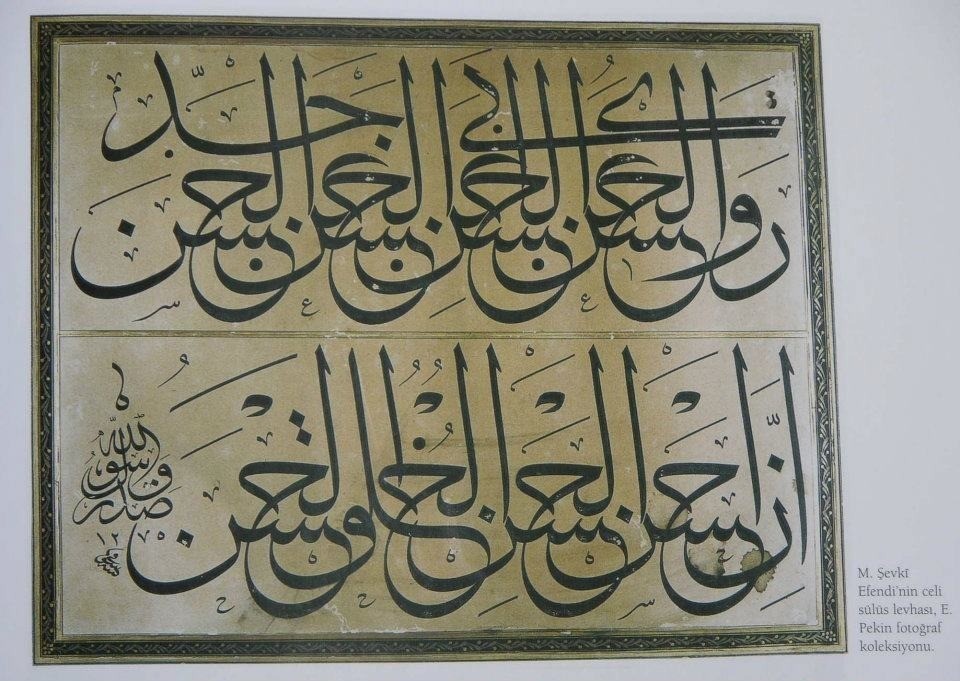 روى الحسن عن الحسن عن ابى الحسن عن جد الحسن
إنّ احسن الحسن الخُلُق الحسن
صدق رسول الله
M. Şevkî
Efendi'nin celi
sülüs levhası, E.
Pekin fotoğraf
koleksiyonu.